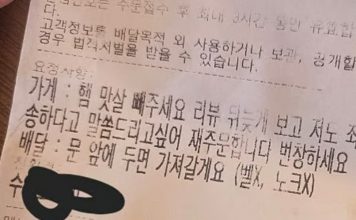 주문접수 후 최대 3시간 동안 유효합
다.
고객정보를 배달목적 외 사용하거나 보관, 공개할
경우 법적처벌을 받을 수 있습니다.
요청사항:
가게 : 햄 맛살 빼주세요 리뷰 뒤늦게 보고 저도 죄
송하다고 말씀드리고싶어 재주문합니다 번창하세요
배달 : 문 앞에 두면 가져갈게요 (벨X, 노크X)
수